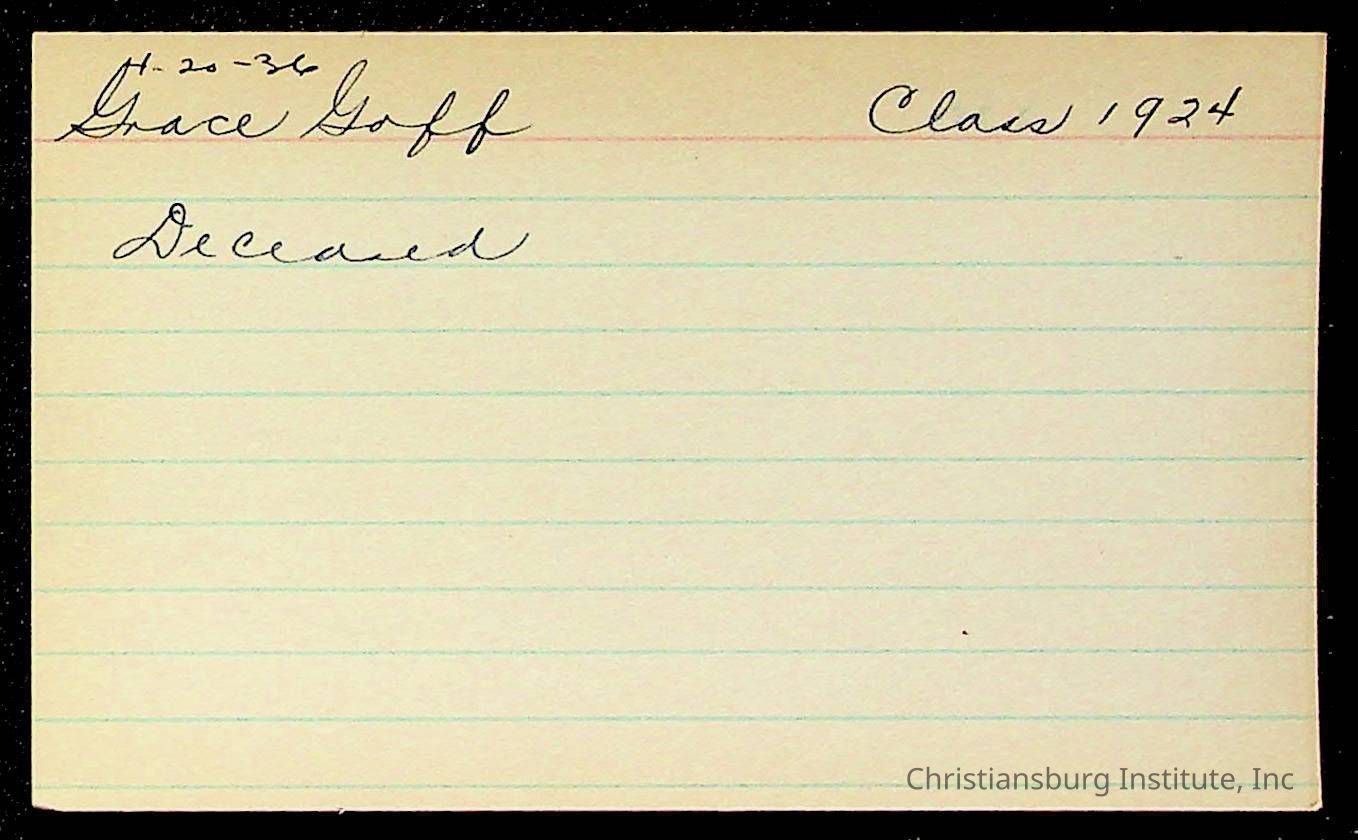 4-20-36
Grace Goff
Class 1924
Deceased
Christiansburg Institute, Inc